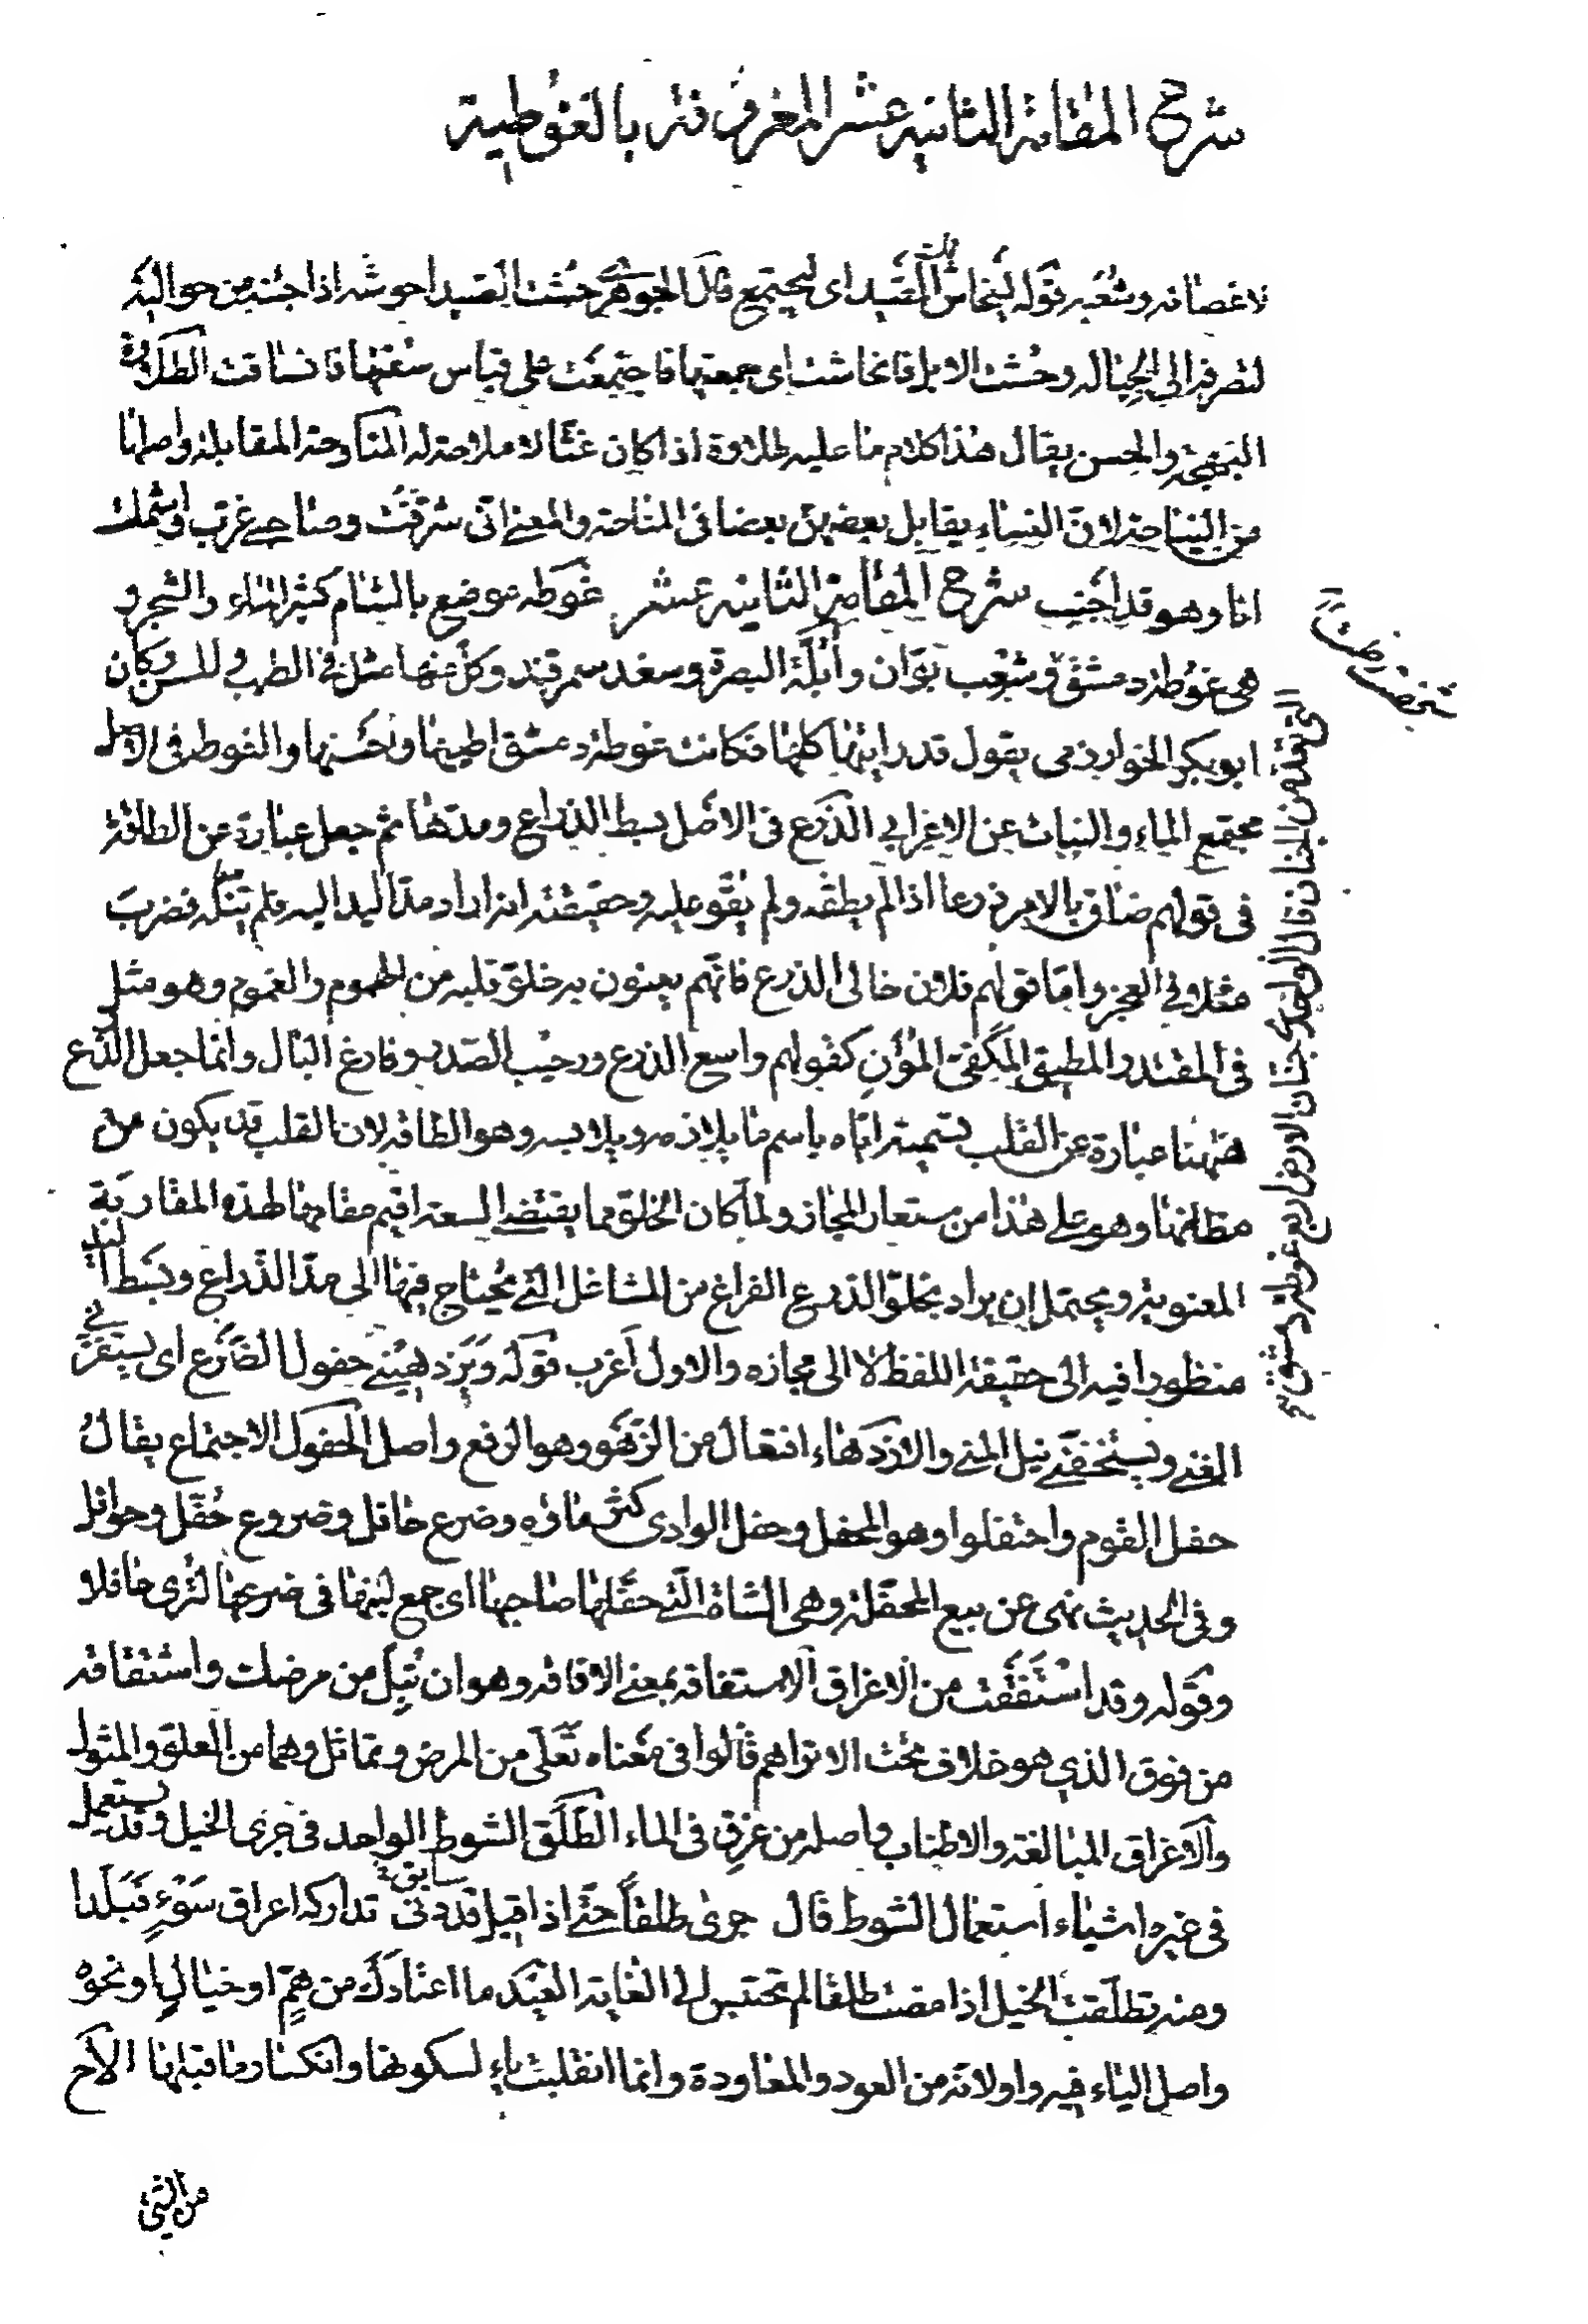 شرح المقامة الثانية عشر المعروفة بالغوطية
لاغصانه وشعبه قوله لينحاش القبيد اى ليجتمع قال الجوهرى حشت الصيد احوشه اذا جئته من حواليه
لتصرفه الى الحبالة وحشت الابل فانحاشت اى جمعتها فاجتمعت على قياس سقتها فانساقت الطلاوة
البهجة والحسن يقال هذا كلام ما عليه طلاوة اذا كان غثا لا ملاحة له المناوحة المقابلة واصلها
من النياحة لان النساء يقابل بعضهن بعضا فى المناحة والمعنى انى شرقت وصاحبى غرب او اشملت
انا وهو قد اجنب شرح المقامة الثانية عشر غوطه موضع بالشام كثير الماء والشجر و
هى غوطة دمشق وشعب بوان وأبلة البصرة وسغد سمرقند وكل منها مثل فى الطيب والحسن وكان
ابو بكر الخوارزمى يقول قد رايتها كلها فكانت غوطة دمشق اطيبها واحسنها والغوطة فى الاصل
مجتمع الماء والنبات عن الاعرابى الذرع فى الاصل بسط الذراع ومدها ثم جعل عبارة عن الطاقة
فى قولهم ضاق بالامر ذرعا اذا لم يطقه ولم يقو عليه وحقيقته انه اراد مد اليد اليه فلم تنله فضرب
مثلا فى العجز واما قولهم فلان خالى الذرع فانهم يعنون به خلو قلبه من الهموم والغموم وهو مثل
فى المقتدر المطيق المكفى المؤن كقولهم واسع الذرع ورحيب الصدر وفارغ البال وانما جعل الذرع
ههنا عبارة عن القلب تسمية اياه باسم ما يلازمه ويلابسه وهو الطاقة لان القلب قد يكون من
مظانها وهو على هذا من مستعار المجاز ولما كان الخلو مما يقتضى السعة اقيم مقامها لهذه المقاربة
المعنوية ويحتمل ان يراد بخلو الذرع الفراغ من المشاغل التى يحتاج فيها الى مد الذراع وبسط اليد
منظورا فيه الى حقيقة اللفظ لا الى مجازه والاول اغرب قوله ويزدهينى حفول الضرع اى يستفزنى
الغنى ويستخفنى نيل المنى والازدهاء افتعال من الزهو وهو الرفع واصل الحفول الاجتماع يقال
حفل القوم واحتفلوا وهو المحفل وحفل الوادى كثر ماؤه وضرع حافل وضروع حفل وحوافل
وفى الحديث نهى عن بيع المحفلة وهى الشاة التى حفلها صاحبها اى جمع لبنها فى ضرعها لترى حافلا
وقوله وقد استفقت من الاغراق الاستفاقة بمعنى الافاقة وهو ان تبل من مرضك واشتقاقه
من فوق الذي هو خلاف تحت الا تراهم قالوا فى معناه تعلى من المرض وتماثل وهما من العلو والمثول
والاغراق المبالغة والاطناب واصله من غرق فى الماء الطلق الشوط الواحد فى جرى الخيل وقد يستعمل
فى غيره اشياء استعمال الشوط قال جرى طلقا حتى اذا قيل قد دنى سابق تداركه اعراق سوء فتبلدا
ومنه تطلقت الخيل اذا مضت طلقا لم تحتبس الى الغاية العيد ما اعتادك من هم او خيال او نحوه
واصل الياء فيه واو لانه من العود والمعاودة وانما انقلبت ياء لسكونها وانكسار ما قبلها الاح
من الشئ
قال الواحدى جنان الارض اربع غوطة دمشق